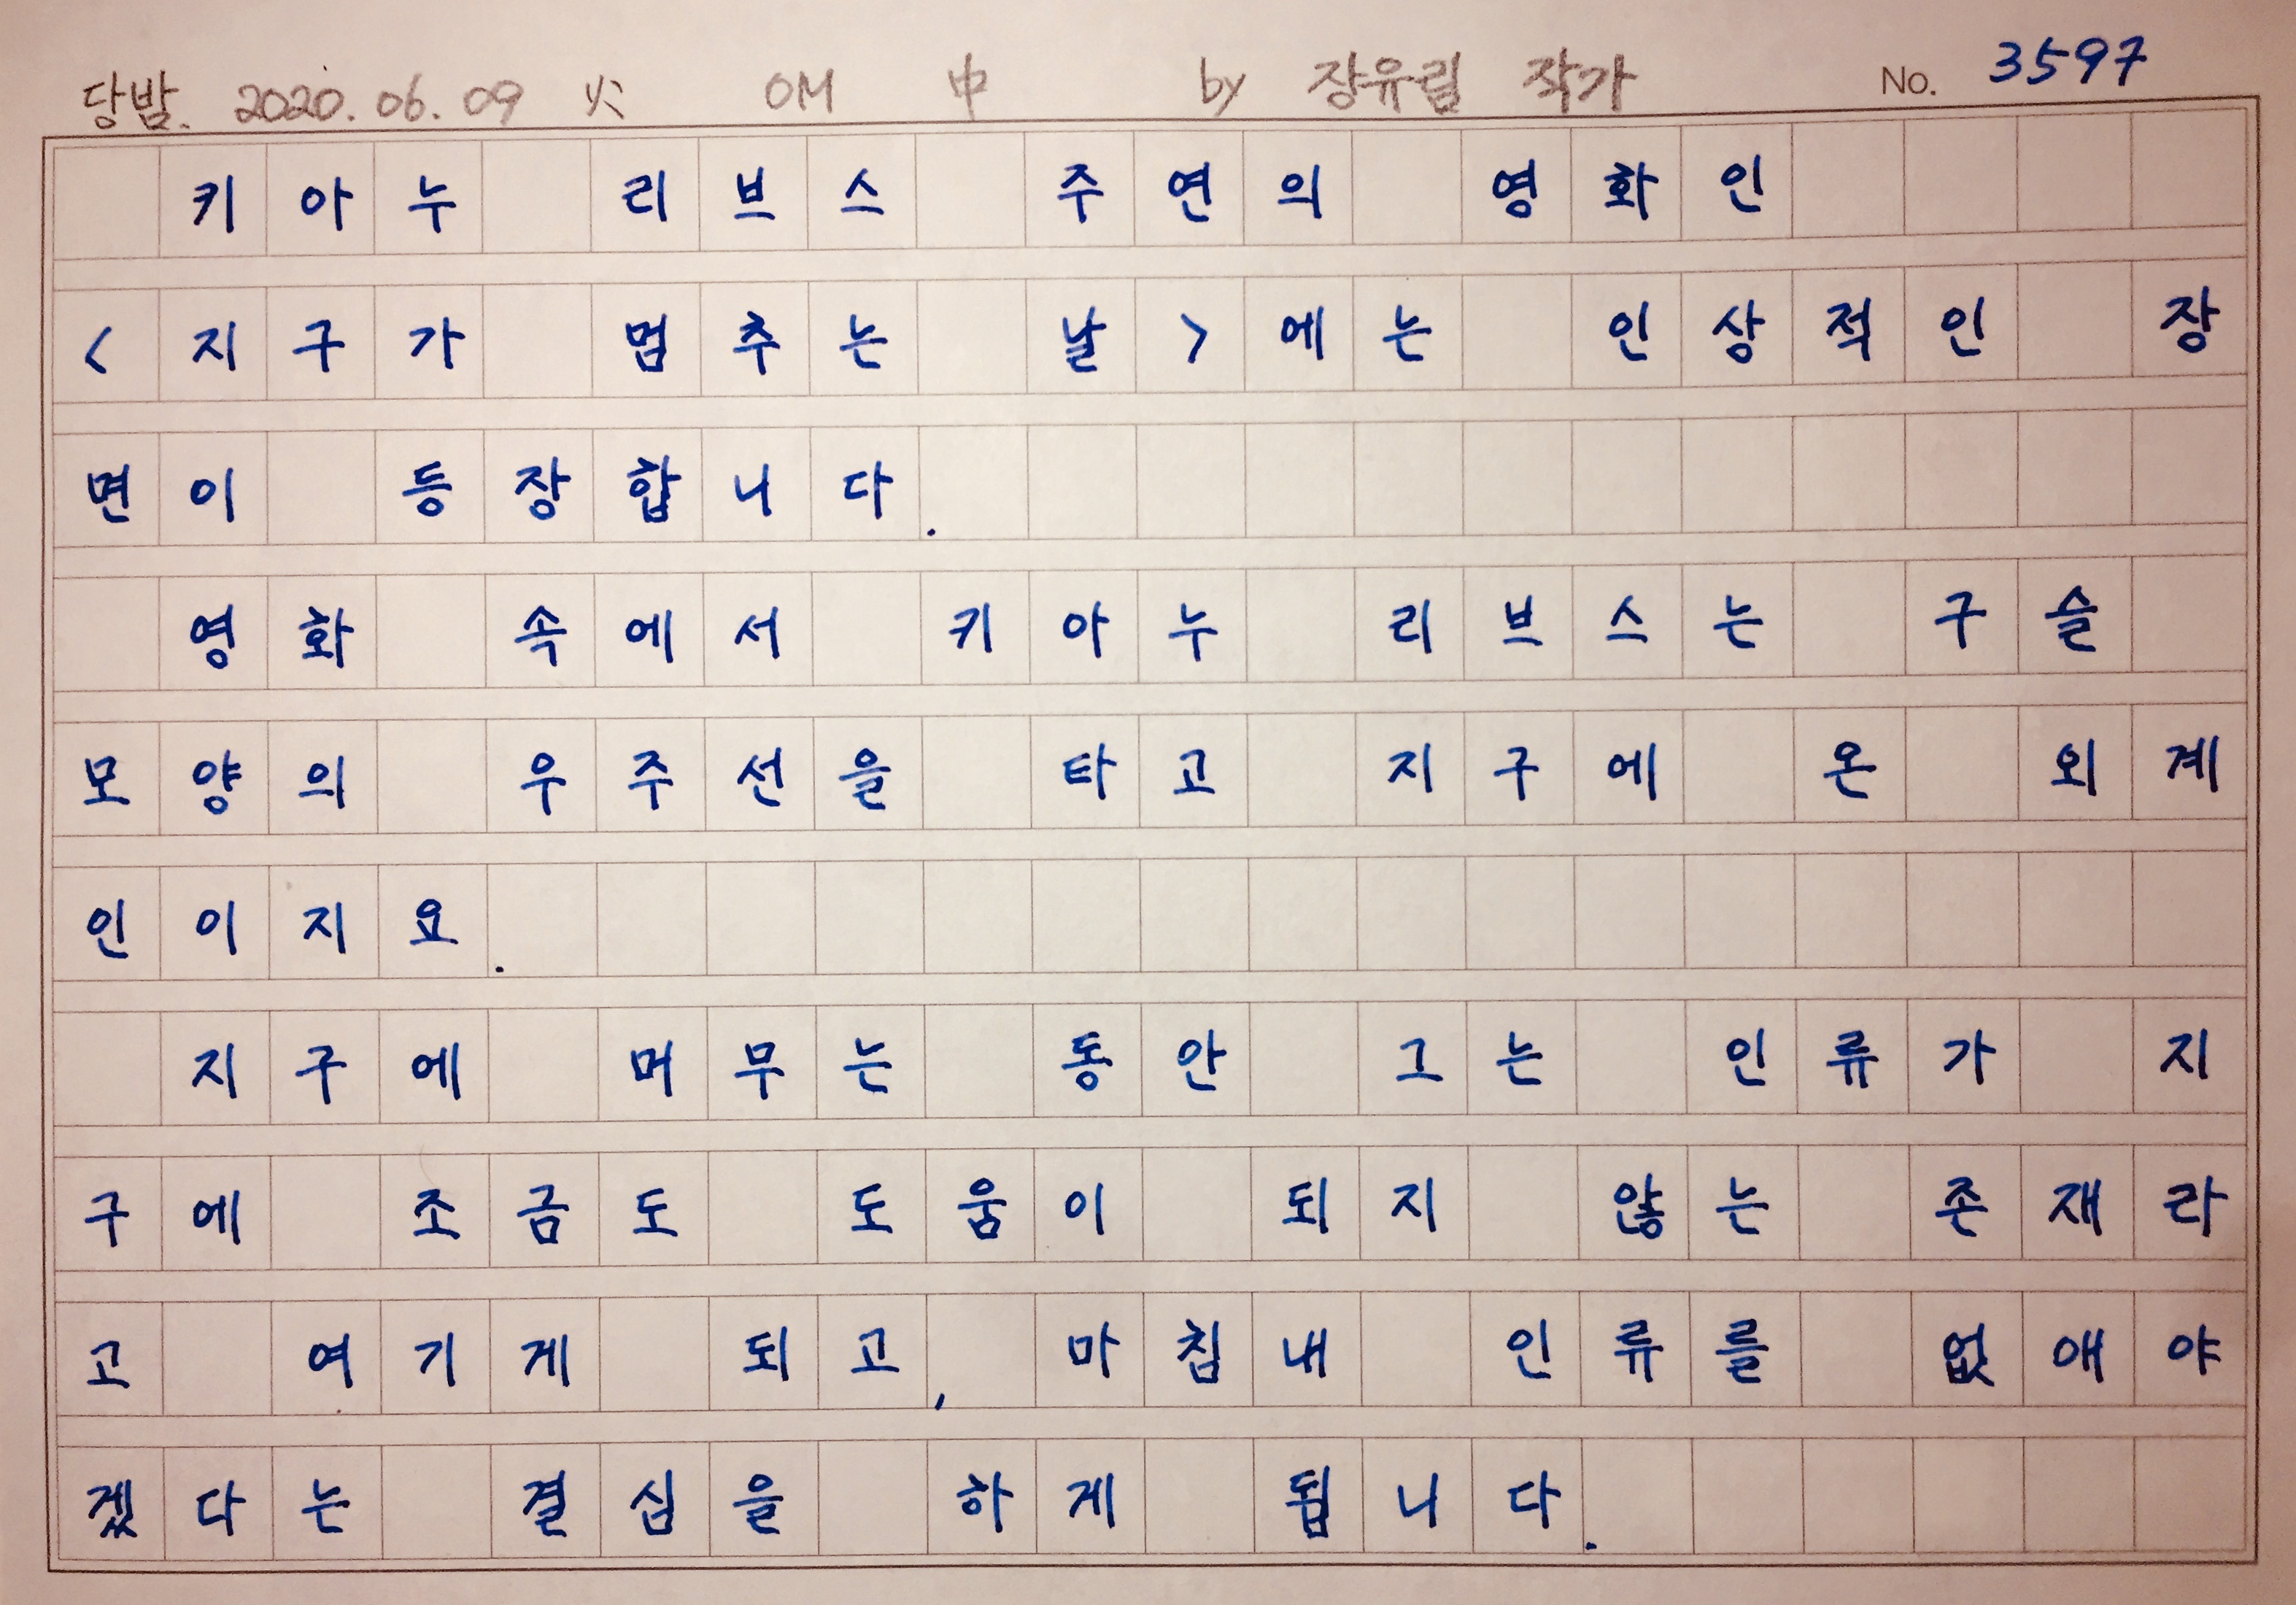 당밤. 2020. 06. 09 火 OM 中 by 장유림 작가 No. 3597
키아누 리브스 주연의 영화인
<지구가 멈추는 날>에는 인상적인 장
면이 등장합니다.
영화 속에서 키아누 리브스는 구슬
모양의 우주선을 타고 지구에 온 외계
인이지요.
지구에 머무는 동안 그는 인류가 지
구에 조금도 도움이 되지 않는 존재라
고 여기게 되고, 마침내 인류를 없애야
겠다는 결심을 하게 됩니다.